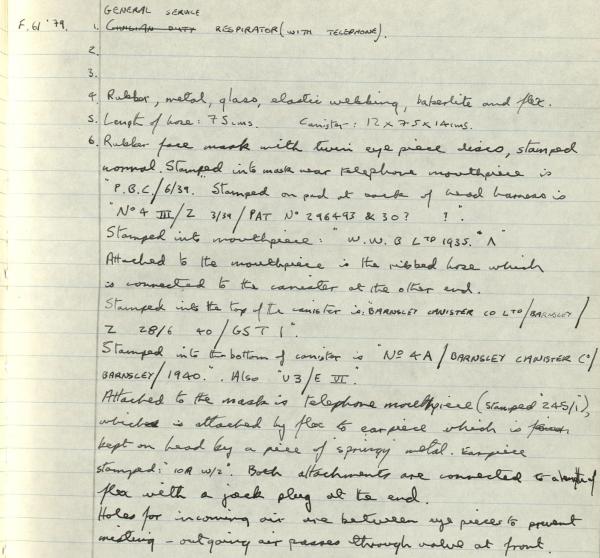 GENERAL SERVICE
F.61 '79. 1. CIVILIAN DUTY RESPIRATOR (WITH TELEPHONE).
2.
3.
4. Rubber, metal, glass, elastic webbing, bakerlite and flex.
5. Length of hose: 75 cms. Canister: 12 x 7.5 x 14 cms.
6. Rubber face mask with twin eye piece discs, stamped
normal. Stamped into mask near telephone mouthpiece is
"P.B.C/6/39." Stamped on pad at back of head harness is
"No 4 III/Z 3/39/PAT No 296493 & 30? ?".
Stamped into mouthpiece: "W.W.B LTD 1935." "Λ"
Attached to the mouthpiece is the ribbed hose which
is connected to the canister at the other end.
Stamped into the top of the canister is: "BARNSLEY CANISTER CO LTD/BARNSLEY/
Z 28/6 40/GST 1".
Stamped into the bottom of canister is "No 4A/BARNSLEY CANISTER Co/
BARNSLEY/1940.". Also "U3/E VI".
Attached to the mask is telephone mouthpiece (stamped "245/1"),
which is attached by flex to earpiece which is
kept on head by a piece of springy metal. Earpiece
stamped: "10A W/2". Both attachments are connected to a length of
flex with a jack plug at the end.
Holes for incoming air are between eye pieces to prevent
misting - outgoing air passes through valve at front.